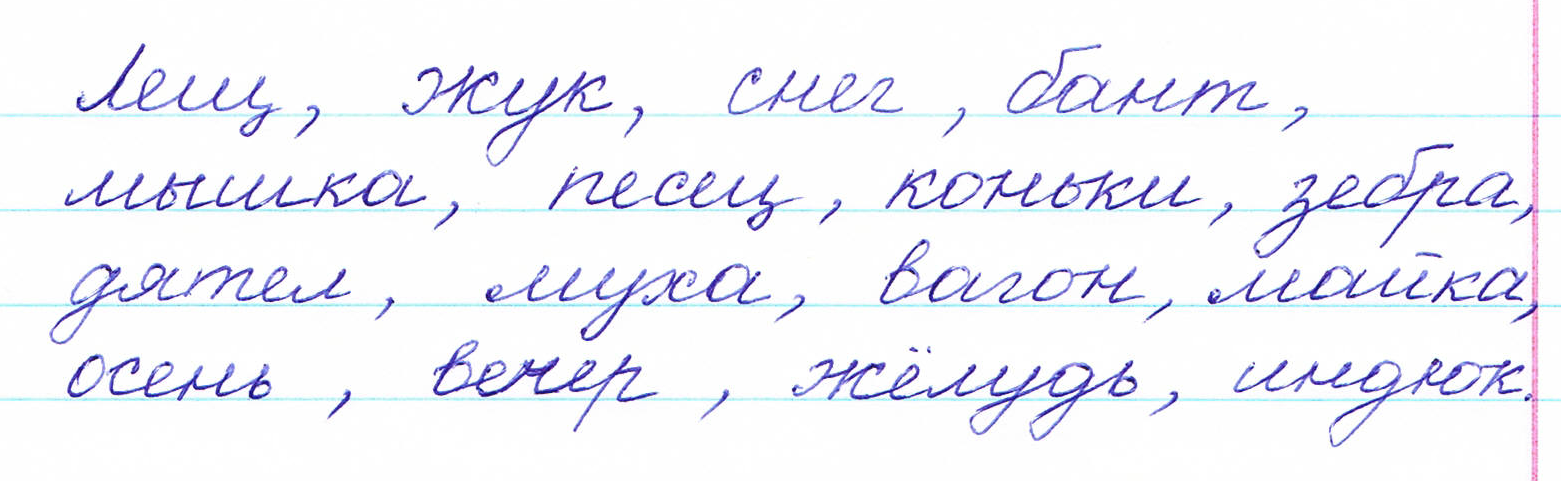 Лещ, жук, снег, бант,
мышка, песец, коньки, зебра,
дятел, муха, вагон, майка,
осень, вечер, жёлудь, индюк.